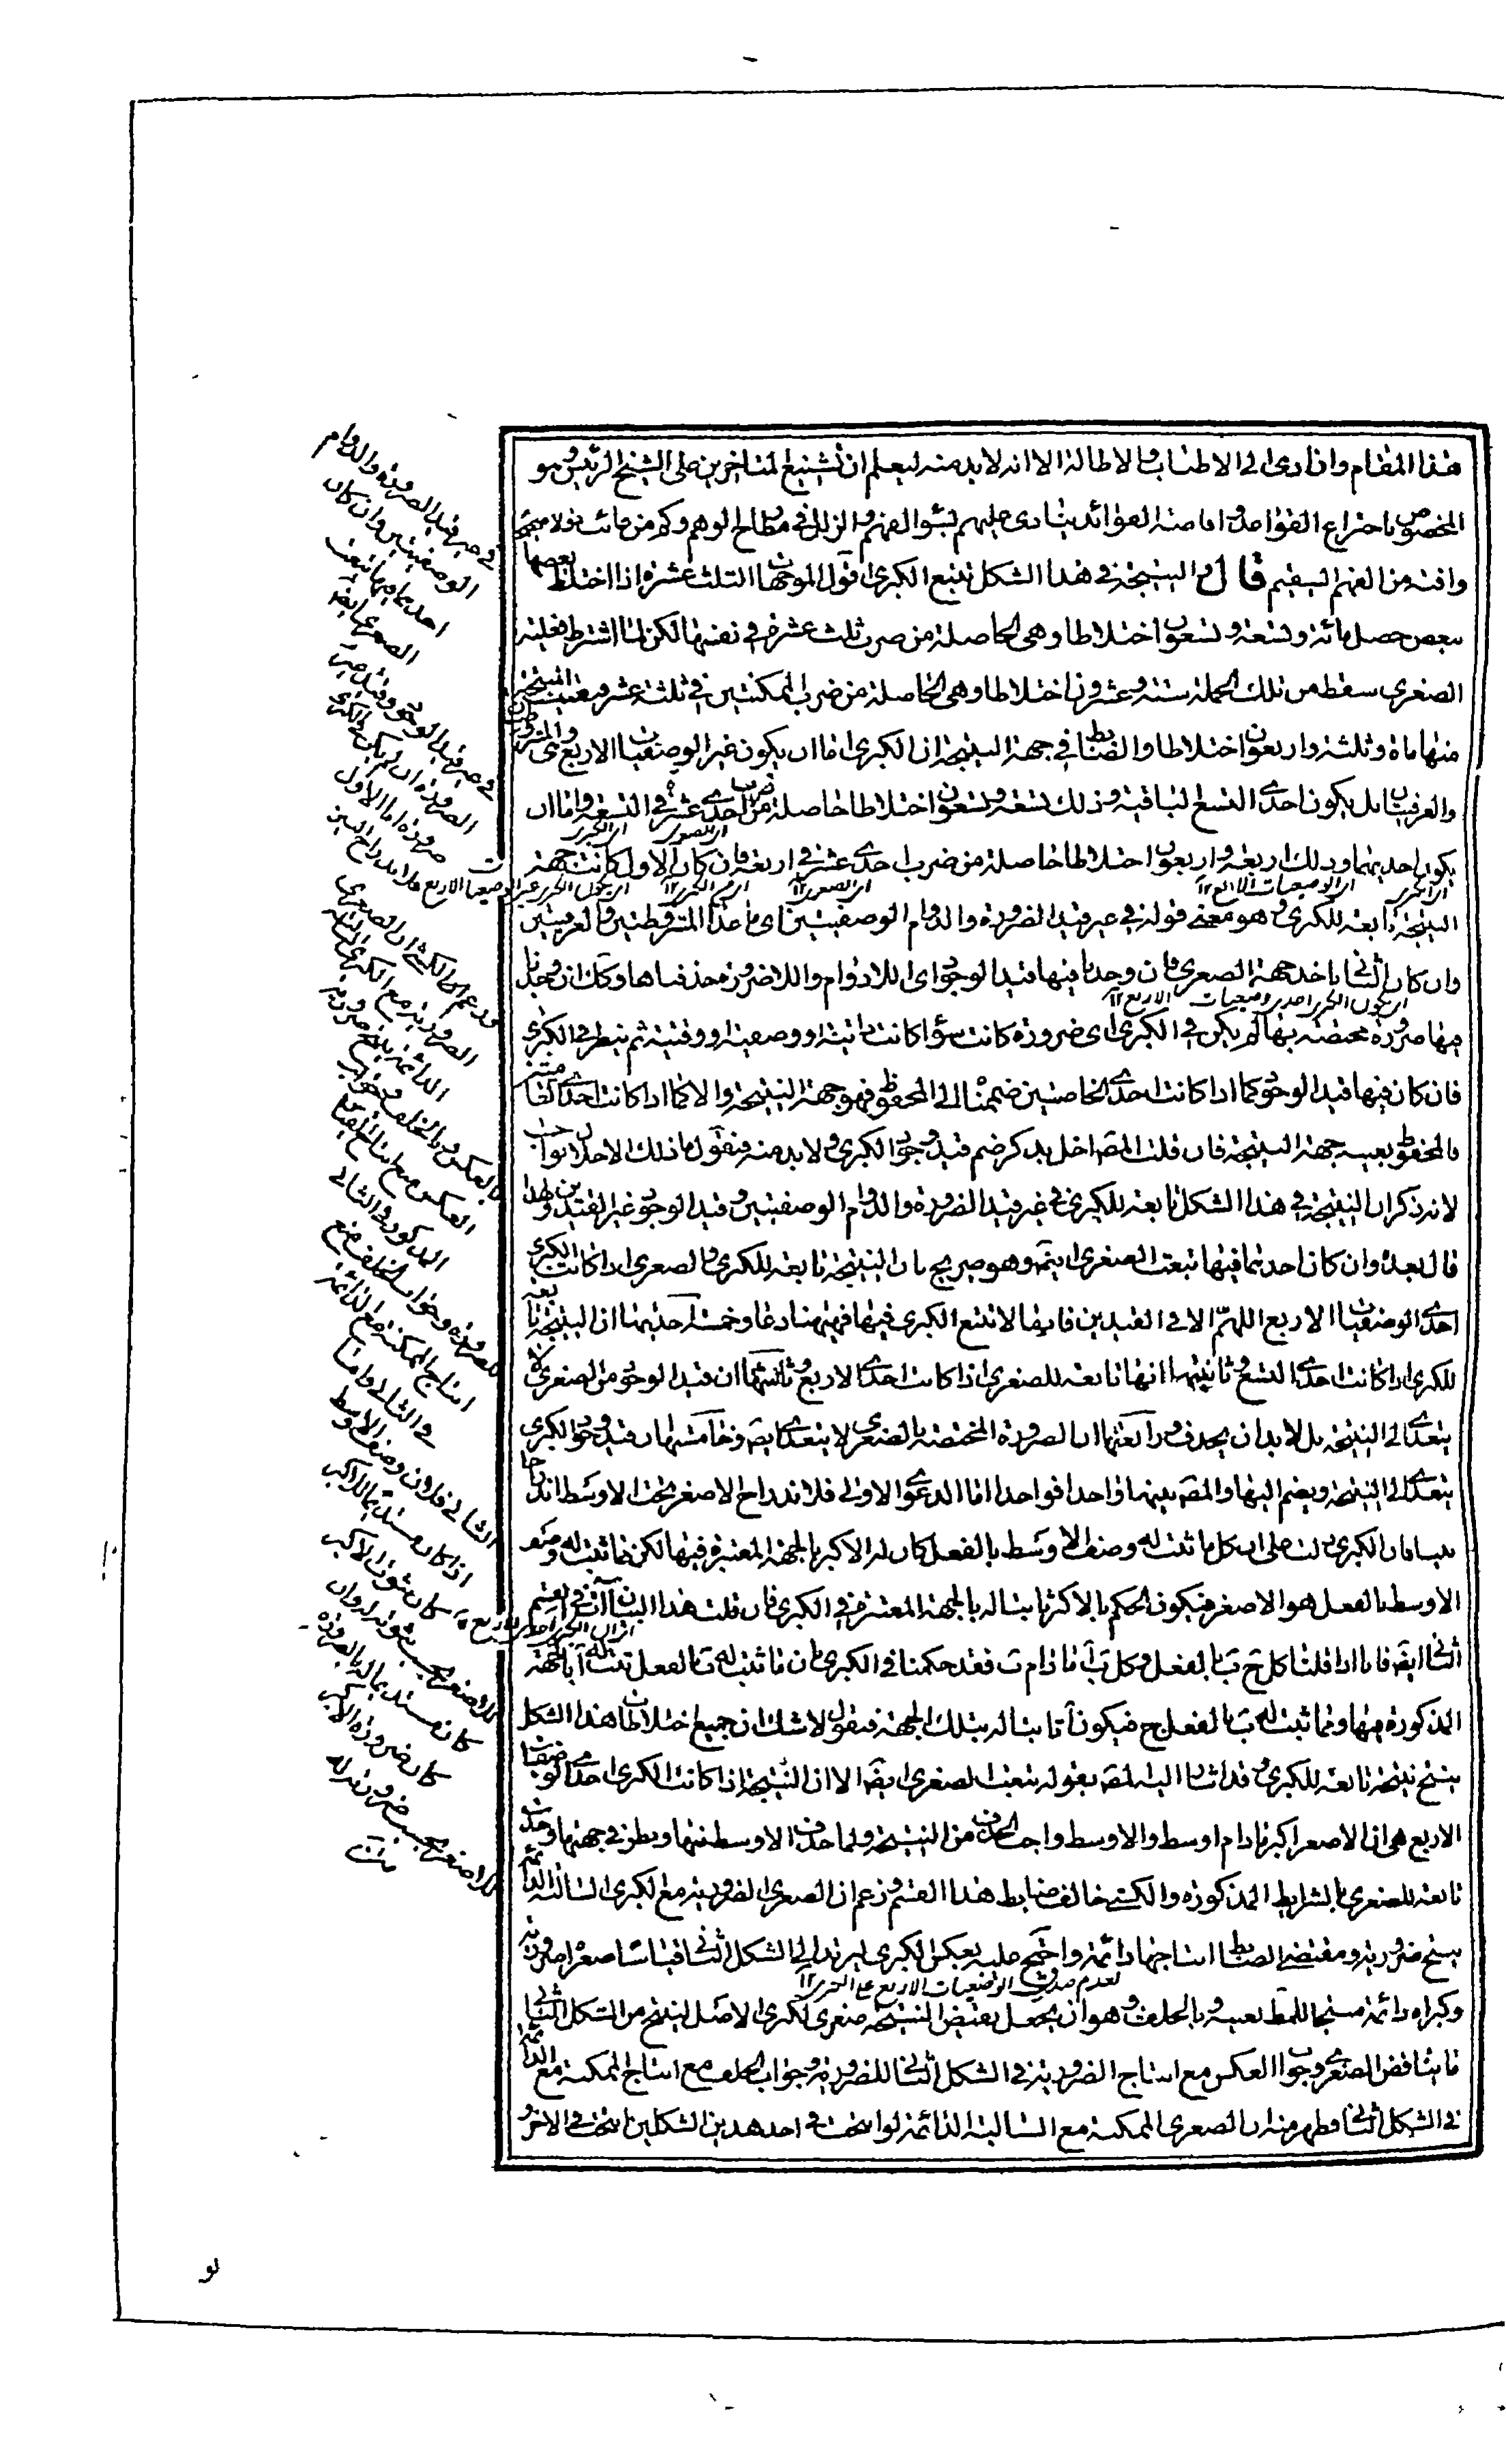 هذا المقام وان ادى الى الاطناب والاطالة الا انه لابد منه ليعلم ان تشنيع المتاخرين على الشيخ الرئيس وهو
المخصوص باختراع القواعد وافاضة الفوائد ينادى عليهم بسوء الفهم والزلل في مطالع الوهم وكم من عائب قولا صحيحا
وافته من الفهم السقيم قال والنتيجة في هذا الشكل تتبع الكبرى اقول الموجهات الثلث عشرة اذا اختلط بعضها
ببعض حصل مائة وتسعة وتسعون اختلاطا وهي الحاصلة من ضرب ثلث عشرة في نفسها لكن لما اشترط فعلية
الصغرى سقط من تلك الجملة ستة وعشرون اختلاطا وهي الحاصلة من ضرب الممكنتين في ثلثة عشر وبقيت المنتجة
منها مائة وثلثة واربعون اختلاطا والضابط في جهة النتيجة ان الكبرى اما ان يكون غير الوصفيات الاربع اى المشروطتين
والعرفيتان بل يكون احدى التسع الباقية وذلك تسعة وتسعون اختلاطا حاصلة من ضرب احدى عشرة في التسعة واما ان
يكون احديهما وذلك اربعة واربعون اختلاطا حاصلة من ضرب احدى عشر في اربعة فان كان الاول كانت جهة
النتيجة تابعة للكبرى وهو معنى قوله في غير قيد الضرورة والدوام الوصفيتين اى ما عدا المشروطتين والعرفيتين
وان كان الثاني ياخذ جهة الصغرى فان وجدنا فيها قيد الوجود اى اللادوام واللاضرورة حذفناها وكذا ان وجدنا
فيها ضرورة مختصة بها لم يكن في الكبرى اى ضرورة كانت سواء كانت ذاتية او وصفية او وقتية ثم ينظر في الكبرى
فان كان فيها قيد الوجود كما اذا كانت احدى الخاصتين ضممناه الى المحفوظ فهو جهة النتيجة والا كما اذا كانت احدى العامتين
فالمحفوظ بعينه جهة النتيجة فان قلت المص اخل بذكر ضم قيد وجود الكبرى ولابد منه فنقول ما ذلك الاخلال بواجب
لانه ذكر ان النتيجة في هذا الشكل تابعة للكبرى في غير قيد الضرورة والدوام الوصفيتين وقيد الوجود غير القيدين ولهذا
قال بعده وان كان احديهما فيها تبعت الصغرى ايضا وهو صريح بان النتيجة تابعة للكبرى والصغرى اذا كانت الكبرى
احدى الوصفيات الاربع اللهم الا في القيدين فانها لا تتبع الكبرى فيها فههنا دعاو خمس احديها ان النتيجة تابعة
للكبرى اذا كانت احدى التسع وثانيتها انها تابعة للصغرى اذا كانت احدى الاربع وثالثتها ان قيد الوجود من الصغرى لا
يتعدى الى النتيجة بل لابد ان يحذف ورابعتها ان الضرورة المختصة بالصغرى لا يتعدى ايضا وخامستها ان قيد وجود الكبرى
يتعدى الى النتيجة ويضم اليها والمص بينها واحدا فواحدا اما الدعوى الاولى فلاندراج الاصغر تحت الاوسط اندراجا
بينا فان الكبرى دلت على ان كل ما ثبت له وصف الاوسط بالفعل كان له الاكبر بالجهة المعتبرة فيها لكن مما ثبت له وصف
الاوسط بالفعل هو الاصغر فيكون الحكم بالاكبر ثابتا له بالجهة المعتبرة في الكبرى فان قلت هذا البيان آت في القسم
الثاني ايضا فانا اذا قلنا كل ج ب بالفعل وكل ب آ ما دام ب فقد حكمنا في الكبرى بان ما ثبت له ب بالفعل ثبت له آ بالجهة
المذكورة فيها ومما ثبت له ب بالفعل ج فيكون آ ثابتا له بتلك الجهة فنقول لاشك ان جميع اختلاطات هذا الشكل
ينتج نتيجة تابعة للكبرى وقد اشار اليه المص بقوله تبعت الصغرى ايضا الا ان النتيجة اذا كانت الكبرى احدى الوصفيات
الاربع هى ان الاصغر اكبر ما دام اوسط والاوسط واجب الحذف من النتيجة ولما حذف الاوسط منها ونظر في جهتها وجدت
تابعة للصغرى بالشرايط المذكورة والكشي خالف ضابط هذا القسم وزعم ان الصغرى الضرورية مع الكبرى السالبة الدائمة
ينتج ضرورية ومقتضى الضابط انتاجها دائمة واحتج عليه بعكس الكبرى ليرتد الى الشكل الثاني قياسا صغراه ضرورية
وكبراه دائمة منتجا للمط بعينه وبالخلف وهو ان يجعل نقيض النتيجة صغرى لكبرى الاصل لينتج من الشكل الثاني
ما يناقض الصغرى وجواب العكس منع انتاج الضرورية في الشكل الثاني للضرورة وجواب الخلف منع انتاج الممكنة مع الدائمة
في الشكل الثاني وظهر منه ان الصغرى الممكنة مع السالبة الدائمة لو انتجت في احد هذين الشكلين انتجت في الاخر و
في غير قيد الضرورة والدوام
الوصفيتين وان كان
احديهما فيها تبعت
الصغرى ايضا
في غير قيد الوجود وقيد
الضرورة ان لم يكن في الكبرى
ضرورة اما الاول
فلاندراج البين
وزعم الكشي ان الصغرى
الضرورية مع الكبرى السالبة
الدائمة ينتج ضرورية
بالعكس وبالخلف وجواب
العكس منع انتاج القياس
المذكور في الثاني
للضرورة وجواب الخلف منع
انتاج الممكنة مع الدائمة
في الثاني واما
الثاني فلان وصف الاوسط
اذا كان مستديما للاكبر
كان ثبوت الاكبر
للاصغر بحسب ثبوته له وان
كان مستديما له بالضرورة
كان ضرورة الاكبر
للاصغر بحسب ضرورته له
لو